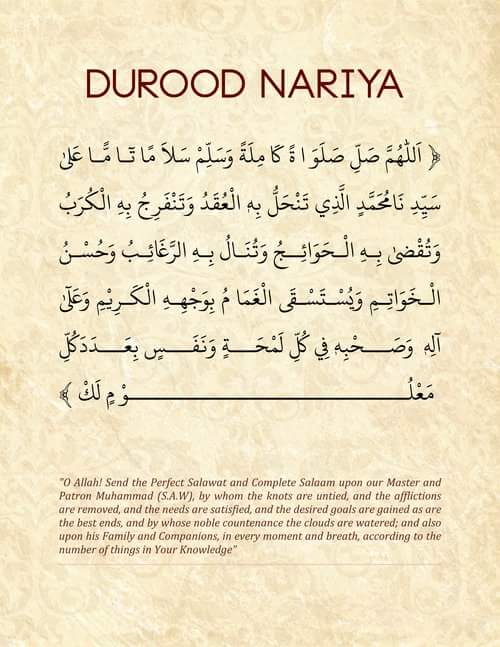 DUROOD NARIYA
﴿ اَللّٰهُمَّ صَلِّ صَلَوَ اةً كَا مِلَةً وَسَلِّمْ سَلاَ مًا تَـا مًّـا عَلىٰ
سَيِّدِ نَامُحَمَّدٍ الَّذِي تَنْحَلُّ بِهِ الْعُقَدُ وَتَنْفَرِجُ بِهِ الْكُرَبُ
وَتُقْضىٰ بِـهِ الْـحَوَائِـجُ وَتُنَالُ بِـهِ الرَّغَائِـبُ وَحُسْـنُ
الْـخَوَاتِـمِ وَيُسْـتَسْـقَى الْغَمَا مُ بِوَجْهِـهِ الْكَـرِيْمِ وَعَلىٰٓ
آلِهِ وَصَـحْبِهِ فِي كُلِّ لَمْحَـةٍ وَنَفَـسٍ بِعَـدَدِكُلِّ
مَعْلُــوْ مٍ لَكْ ﴾
"O Allah! Send the Perfect Salawat and Complete Salaam upon our Master and
Patron Muhammad (S.A.W), by whom the knots are untied, and the afflictions
are removed, and the needs are satisfied, and the desired goals are gained as are
the best ends, and by whose noble countenance the clouds are watered; and also
upon his Family and Companions, in every moment and breath, according to the
number of things in Your Knowledge"